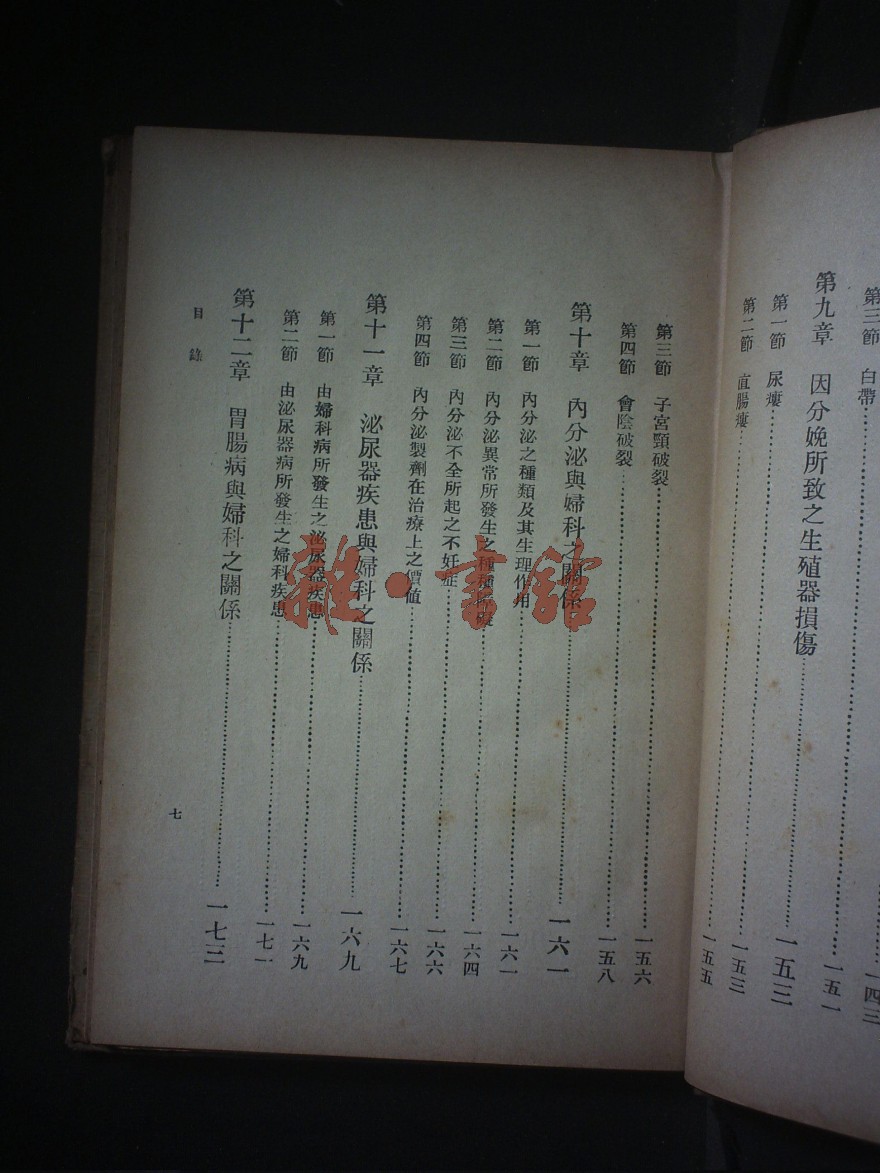 一四三
第三節 白帶……一五一
第九章 因分娩所致之生殖器損傷……一五三
第一節 尿瘻……一五三
第二節 直腸瘻……一五五
第三節 子宮頸破裂……一五六
第四節 會陰破裂……一五八
第十章 內分泌與婦科之關係……一六一
第一節 內分泌之種類及其生理作用……一六一
第二節 內分泌異常所發生之種種障礙……一六四
第三節 內分泌不全所起之不妊症……一六六
第四節 內分泌製劑在治療上之價值……一六七
第十一章 泌尿器疾患與婦科之關係……一六九
第一節 由婦科病所發生之泌尿器疾患……一六九
第二節 由泌尿器病所發生之婦科疾患……一七一
第十二章 胃腸病與婦科之關係……一七三
目錄
七
雜·書館